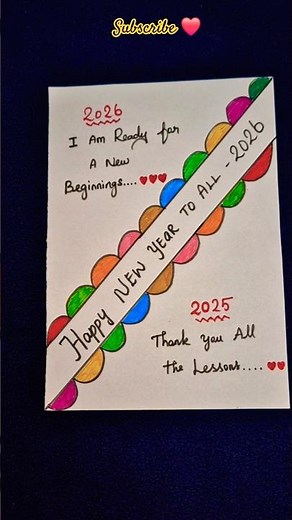 Subscribe ❤️
2026
I Am Ready for
A New
Beginnings....❤❤❤
Happy NEW YEAR TO ALL - 2026
2025
Thank you All
the Lessons....❤❤